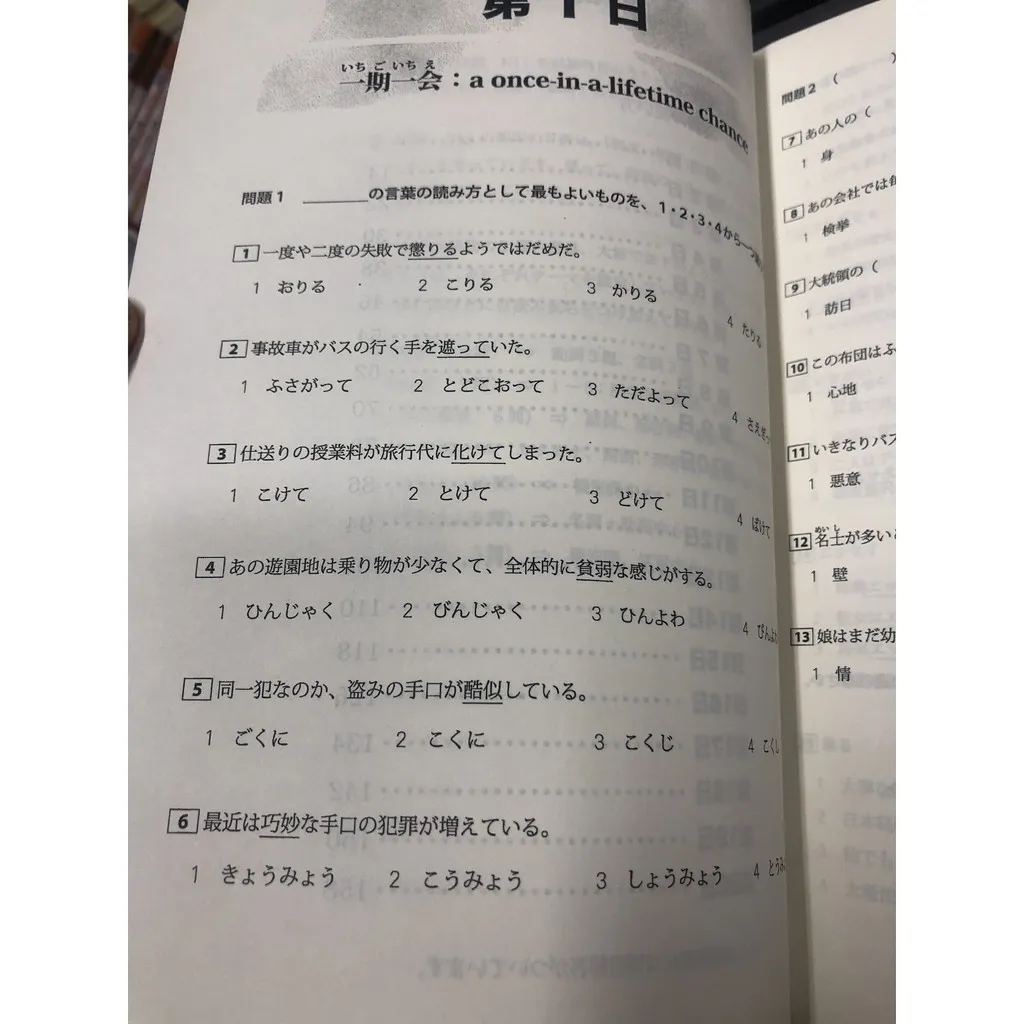 第1日
いちごいちえ
一期一会：a once-in-a-lifetime chance
問題1 ______の言葉の読み方として最もよいものを、1・2・3・4から一つ
1 一度や二度の失敗で懲りるようではだめだ。
1 おりる 2 こりる 3 かりる 4 たりる
2 事故車がバスの行く手を遮っていた。
1 ふさがって 2 とどこおって 3 ただよって 4 さえぎっ
3 仕送りの授業料が旅行代に化けてしまった。
1 こけて 2 とけて 3 どけて 4 ばけて
4 あの遊園地は乗り物が少なくて、全体的に貧弱な感じがする。
1 ひんじゃく 2 びんじゃく 3 ひんよわ 4 びんよわ
5 同一犯なのか、盗みの手口が酷似している。
1 ごくに 2 こくに 3 こくじ 4 こくし
6 最近は巧妙な手口の犯罪が増えている。
1 きょうみょう 2 こうみょう 3 しょうみょう 4 とうみ
問題2 （ ）
7 あの人の（
1 身
8 あの会社では毎
1 検挙
9 大統領の（
1 訪日
10 この布団はふ
1 心地
11 いきなりバス
1 悪意
めいし
12 名士が多い
1 壁
13 娘はまだ幼
1 情